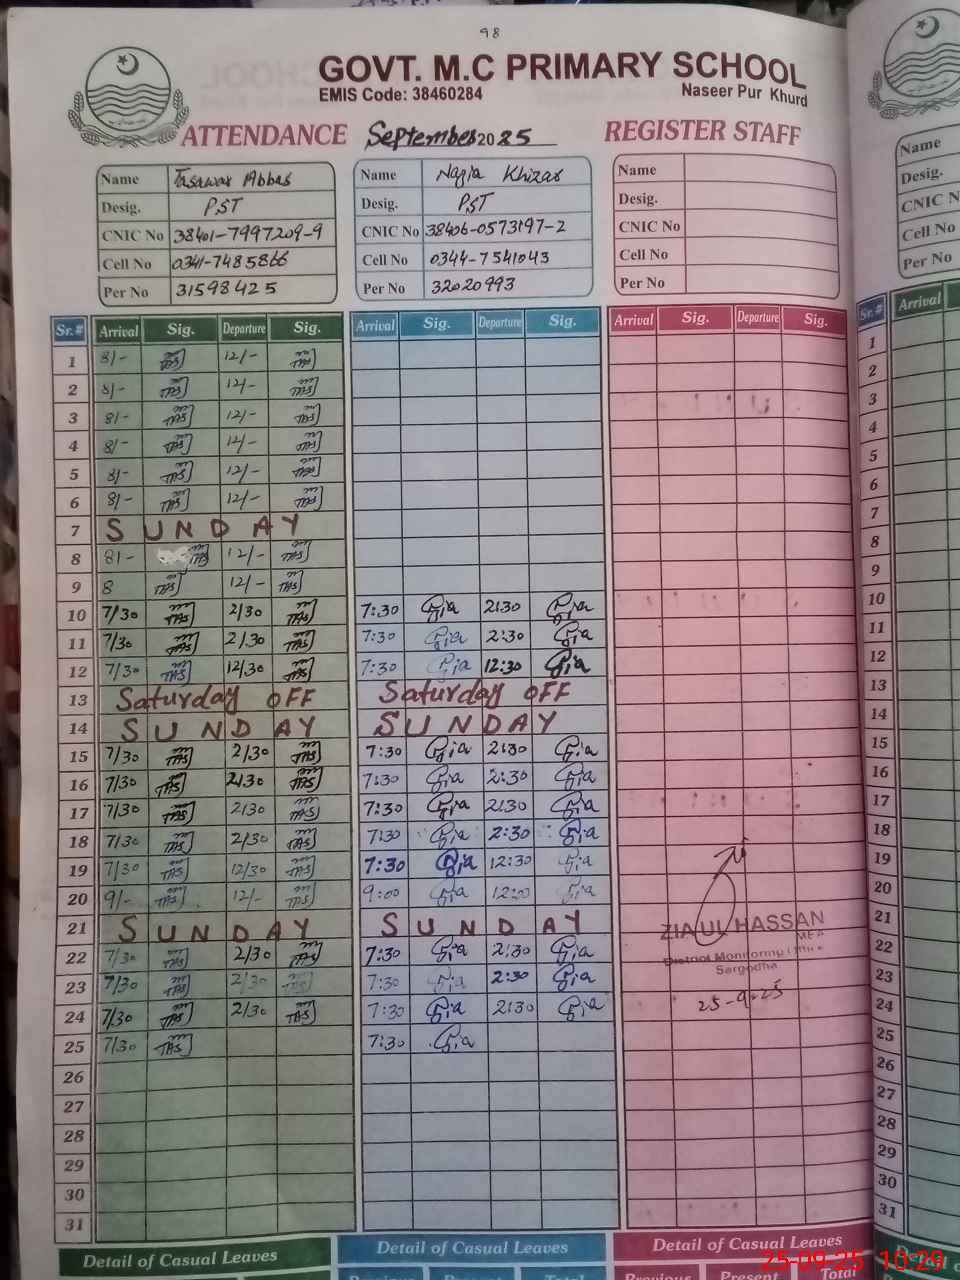 98
GOVT. M.C PRIMARY SCHOOL
EMIS Code: 38460284 Naseer Pur Khurd
ATTENDANCE September 2025 REGISTER STAFF
Name Tasawar Abbas Name Nazia Khizar Name Name
Desig. PST Desig. PST Desig. Desig.
CNIC No 38401-7997209-9 CNIC No 38406-0573197-2 CNIC No CNIC N
Cell No 0341-7485866 Cell No 0344-7541043 Cell No Cell No
Per No 31598425 Per No 32020993 Per No Per No
Sr.# Arrival Sig. Departure Sig. Arrival Sig. Departure Sig. Arrival Sig. Departure Sig. Sr.# Arrival
1 8/- 12/- 1
2 8/- 12/- 2
3 8/- 12/- 3
4 8/- 12/- 4
5 8/- 12/- 5
6 8/- 12/- 6
7 SUNDAY 7
8 8/- 12/- 8
9 8 12/- 9
10 7/30 2/30 7:30 2:30 10
11 7/30 2/30 7:30 2:30 11
12 7/30 12/30 7:30 12:30 12
13 Saturday OFF Saturday OFF 13
14 SUNDAY SUNDAY 14
15 7/30 2/30 7:30 2:30 15
16 7/30 2/30 7:30 2:30 16
17 7/30 2/30 7:30 2:30 17
18 7/30 2/30 7:30 2:30 18
19 7/30 12/30 7:30 12:30 19
20 9/- 12/- 9:00 12:00 20
21 SUNDAY SUNDAY ZIA UL HASSAN 21
22 7/30 2/30 7:30 2:30 MEA District Monitoring 22
23 7/30 2/30 7:30 2:30 Sargodha 23
24 7/30 2/30 7:30 2:30 25-9-25 24
25 7/30 7:30 25
26 26
27 27
28 28
29 29
30 30
31 31
Detail of Casual Leaves Detail of Casual Leaves Detail of Casual Leaves Detail
Previous Present Total Previous Present Total
25-09-25 10:29